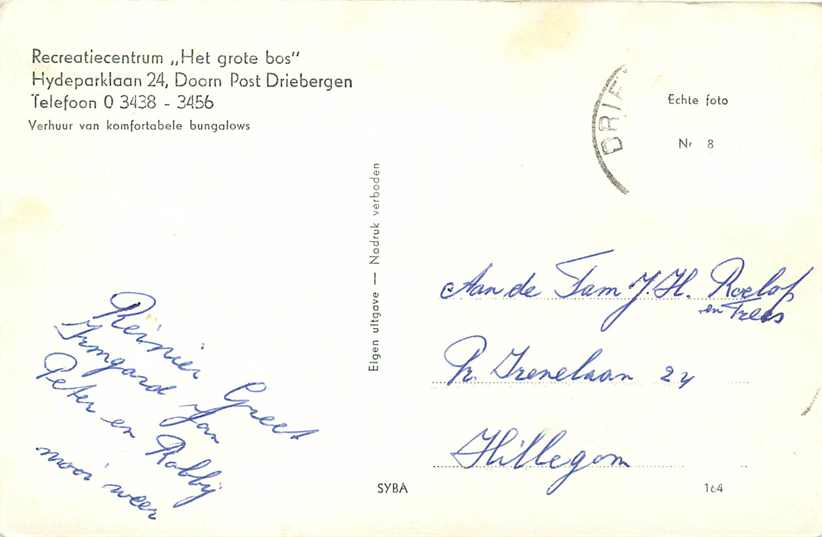 Recreatiecentrum „Het grote bos"
Hydeparklaan 24, Doorn Post Driebergen
Telefoon 0 3438 - 3456
Verhuur van komfortabele bungalows
Reinier Greet
Irmgard Jan
Peter en Robby
mooi weer
Eigen uitgave — Nadruk verboden
SYBA
DRIE
Echte foto
Nr 8
Aan de Fam J. H. Roelof
en Trees
Pr. Irenelaan 24
Hillegom
164